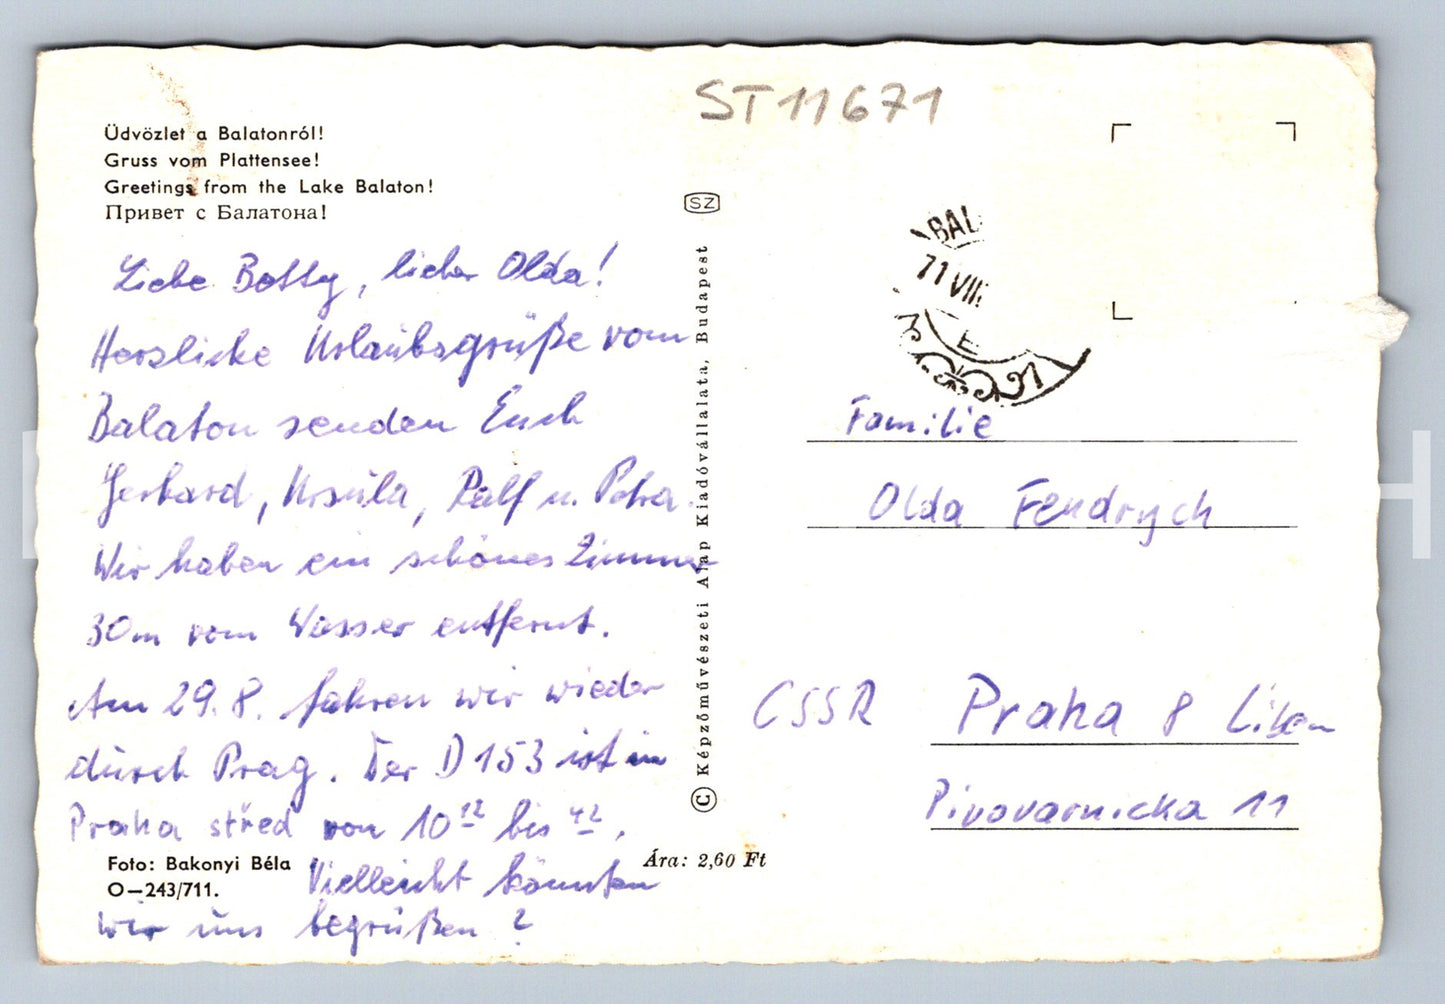 ST 11671
Üdvözlet a Balatonról!
Gruss vom Plattensee!
Greetings from the Lake Balaton!
Привет с Балатона!
Liebe Betty, lieber Olda!
Herzliche Urlaubsgrüße vom
Balaton senden Euch
Gerhard, Ursula, Ralf u. Petra.
Wir haben ein schönes Zimmer
30m vom Wasser entfernt.
Am 29.8. fahren wir wieder
durch Prag. Der D 153 ist in
Praha střed von 10 12 bis 42.
Vielleicht könnten
wir uns begrüßen?
Foto: Bakonyi Béla
O—243/711.
SZ
© Képzőművészeti Alap Kiadóvállalata, Budapest
Ára: 2,60 Ft
BAL
71 VIII
Familie
Olda Fendrych
CSSR Praha 8 Liben
Pivovarnicka 11